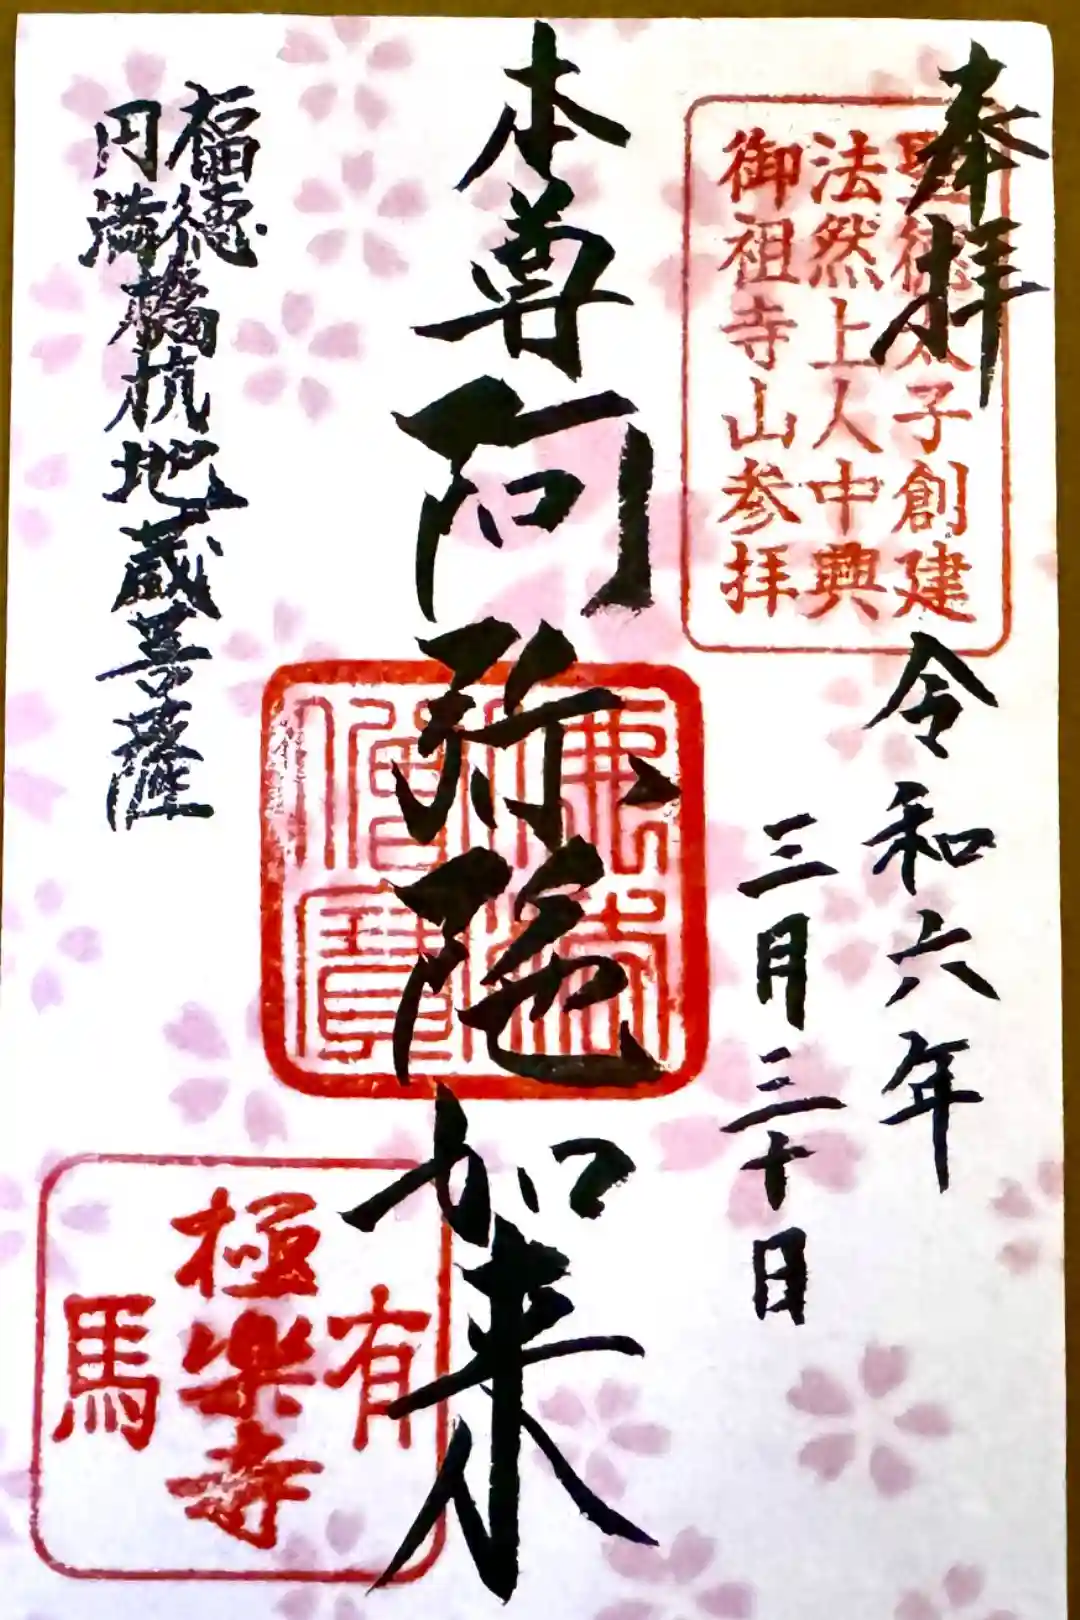 奉拝
聖徳太子創建
法然上人中興
御祖寺山参拝
令和六年
三月三十日
本尊阿弥陀如来
福徳
円満
橋杭地蔵菩薩
有
極楽寺
馬